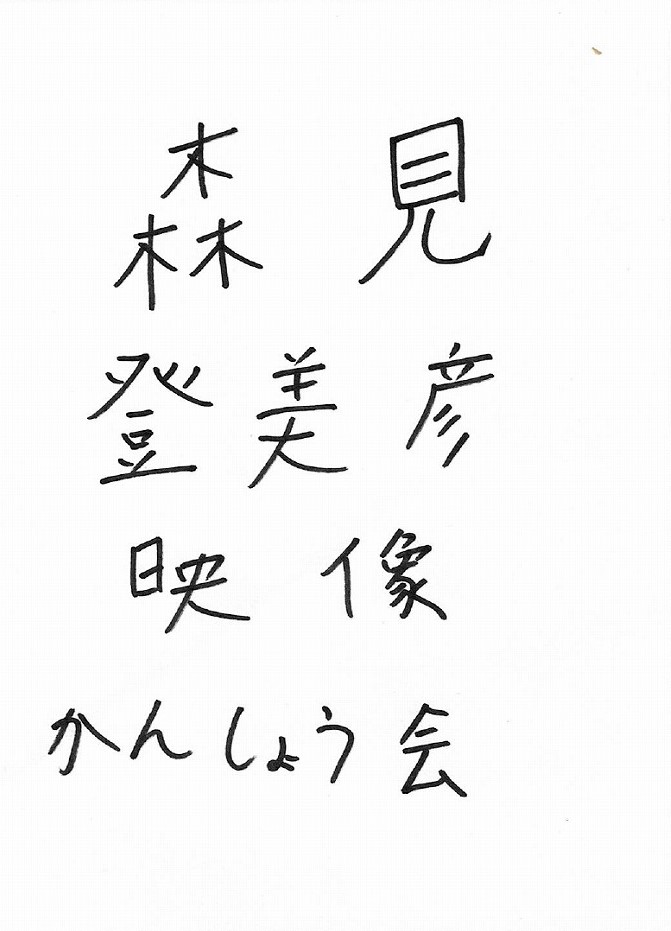 森見
登美彦
映像
かんしょう会